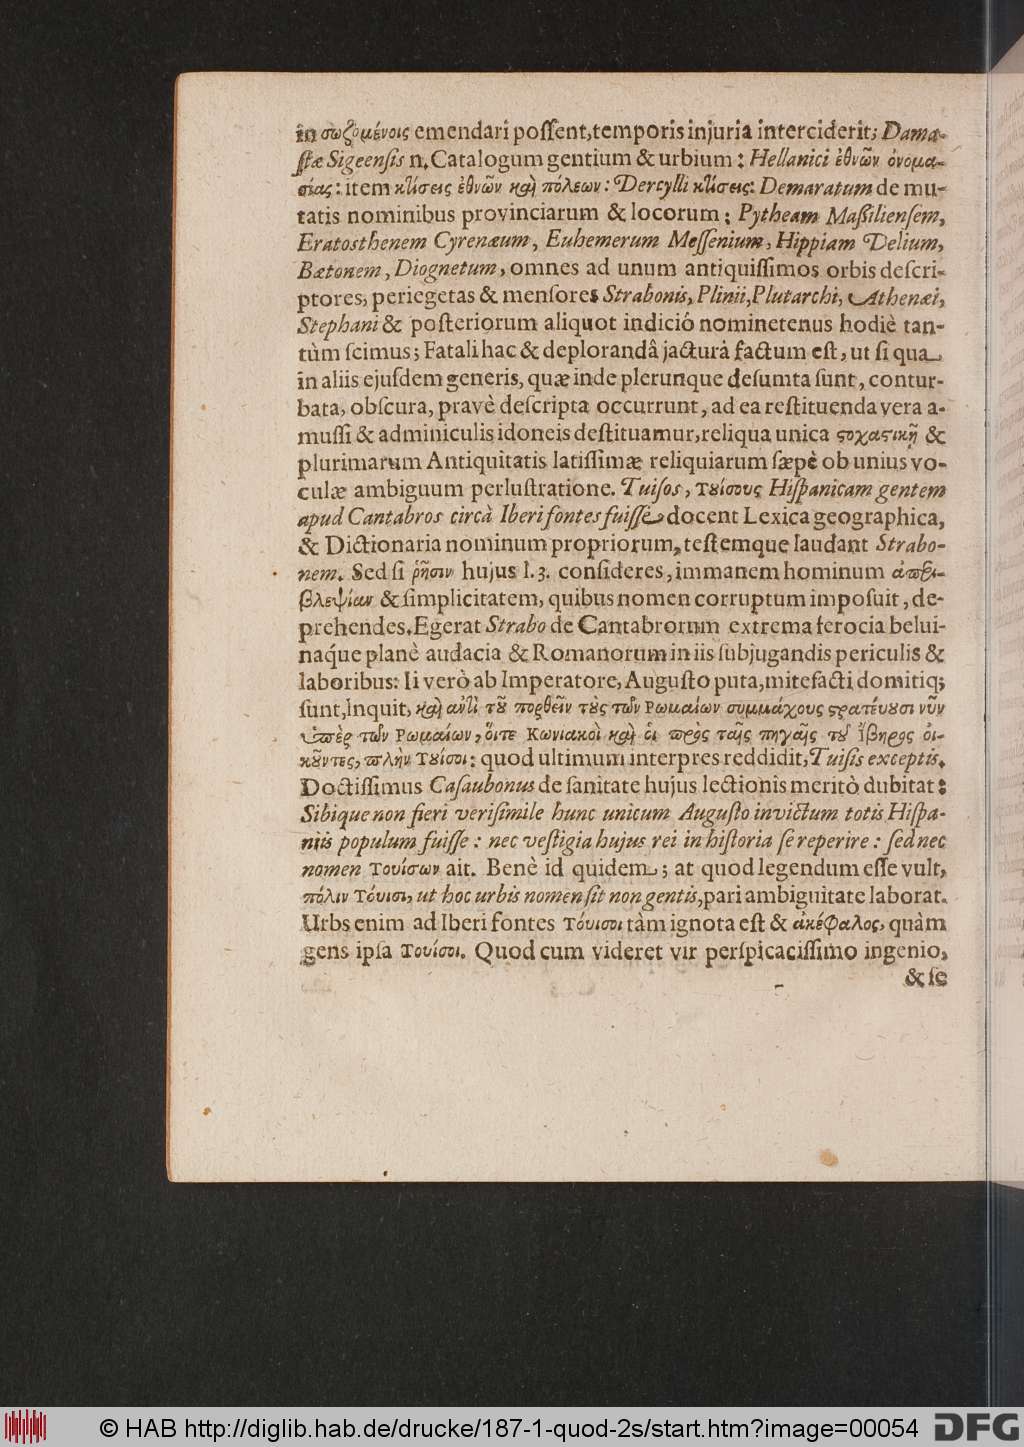 in σωζομένοις emendari poſſent, temporis injuria interciderit; Dama-
ſtæ Sigeenſis n. Catalogum gentium & urbium: Hellanici ἐθνῶν ὀνομα-
σίας: item κτίσεις ἐθνῶν καὶ πόλεων: Dercylli κτίσεις: Demaratum de mu-
tatis nominibus provinciarum & locorum; Pytheam Maſſilienſem,
Eratosthenem Cyrenæum, Euhemerum Meſſenium, Hippiam Delium,
Bætonem, Diognetum, omnes ad unum antiquiſſimos orbis deſcri-
ptores, periegetas & menſores Strabonis, Plinii, Plutarchi, Athenæi,
Stephani & poſteriorum aliquot indició nominetenus hodiè tan-
tùm ſcimus; Fatali hac & deplorandâ jacturà factum eſt, ut ſi qua
in aliis ejuſdem generis, quæ inde plerunque deſumta ſunt, contur-
bata, obſcura, pravè deſcripta occurrunt, ad ea reſtituenda vera a-
muſſi & adminiculis idoneis deſtituamur, reliqua unica ϛοχαϛικῇ &
plurimarum Antiquitatis latiſſimæ reliquiarum ſæpè ob unius vo-
culæ ambiguum perluſtratione. Tuiſos, Τȣίσους Hiſpanicam gentem
apud Cantabros circà Iberi fontes fuiſſe docent Lexica geographica,
& Dictionaria nominum propriorum, teſtemque laudant Strabo-
nem. Sed ſi ῥῆσιν hujus l. 3. conſideres, immanem hominum ἀπρι-
βλεψίαν & ſimplicitatem, quibus nomen corruptum impoſuit, de-
prehendes. Egerat Strabo de Cantabrorum extrema ferocia belui-
naq́ue planè audacia & Romanorum in iis ſubjugandis periculis &
laboribus: Ii verò ab Imperatore, Auguſto puta, mitefacti domitiq;
ſunt, Inquit, καὶ ἀντὶ τȣ͂ πορθεῖν τȣ̀ς τῶν Ρωμαίων συμμάχους ϛρατέυȣσι νῦν
ὑπὲρ τῶν Ρωμαίων, ὅιτε Κωνιακοὶ καὶ ὁι πρὸς ταῖς πηγαῖς τȣ͂ Ἴβηρος ὀι-
κȣ͂ντες, πλὴν Τȣίσοι: quod ultimum interpres reddidit, Tuiſis exceptis.
Doctiſſimus Caſaubonus de ſanitate hujus lectionis meritò dubitat:
Sibique non fieri veriſimile hunc unicum Auguſto invictum totis Hiſpa-
niis populum fuiſſe: nec veſtigia hujus rei in hiſtoria ſe reperire: ſed nec
nomen Τουίσων ait. Benè id quidem; at quod legendum eſſe vult,
πόλιν Τόυισι, ut hoc urbis nomen ſit non gentis, pari ambiguitate laborat.
Urbs enim ad Iberi fontes Τόυισοι tàm ignota eſt & ἀκέφαλος, quàm
gens ipſa Τουίσοι. Quod cum videret vir perſpicaciſſimo ingenio,
& ſe
© HAB http://diglib.hab.de/drucke/187-1-quod-2s/start.htm?image=00054
DFG